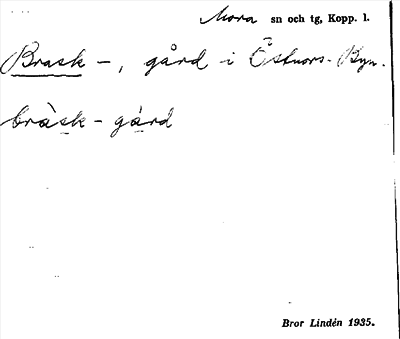 Mora sn och tg, Kopp. l.
Brask -, gård i Östnors-Byn.
bràsk - gård
Bror Lindén 1935.